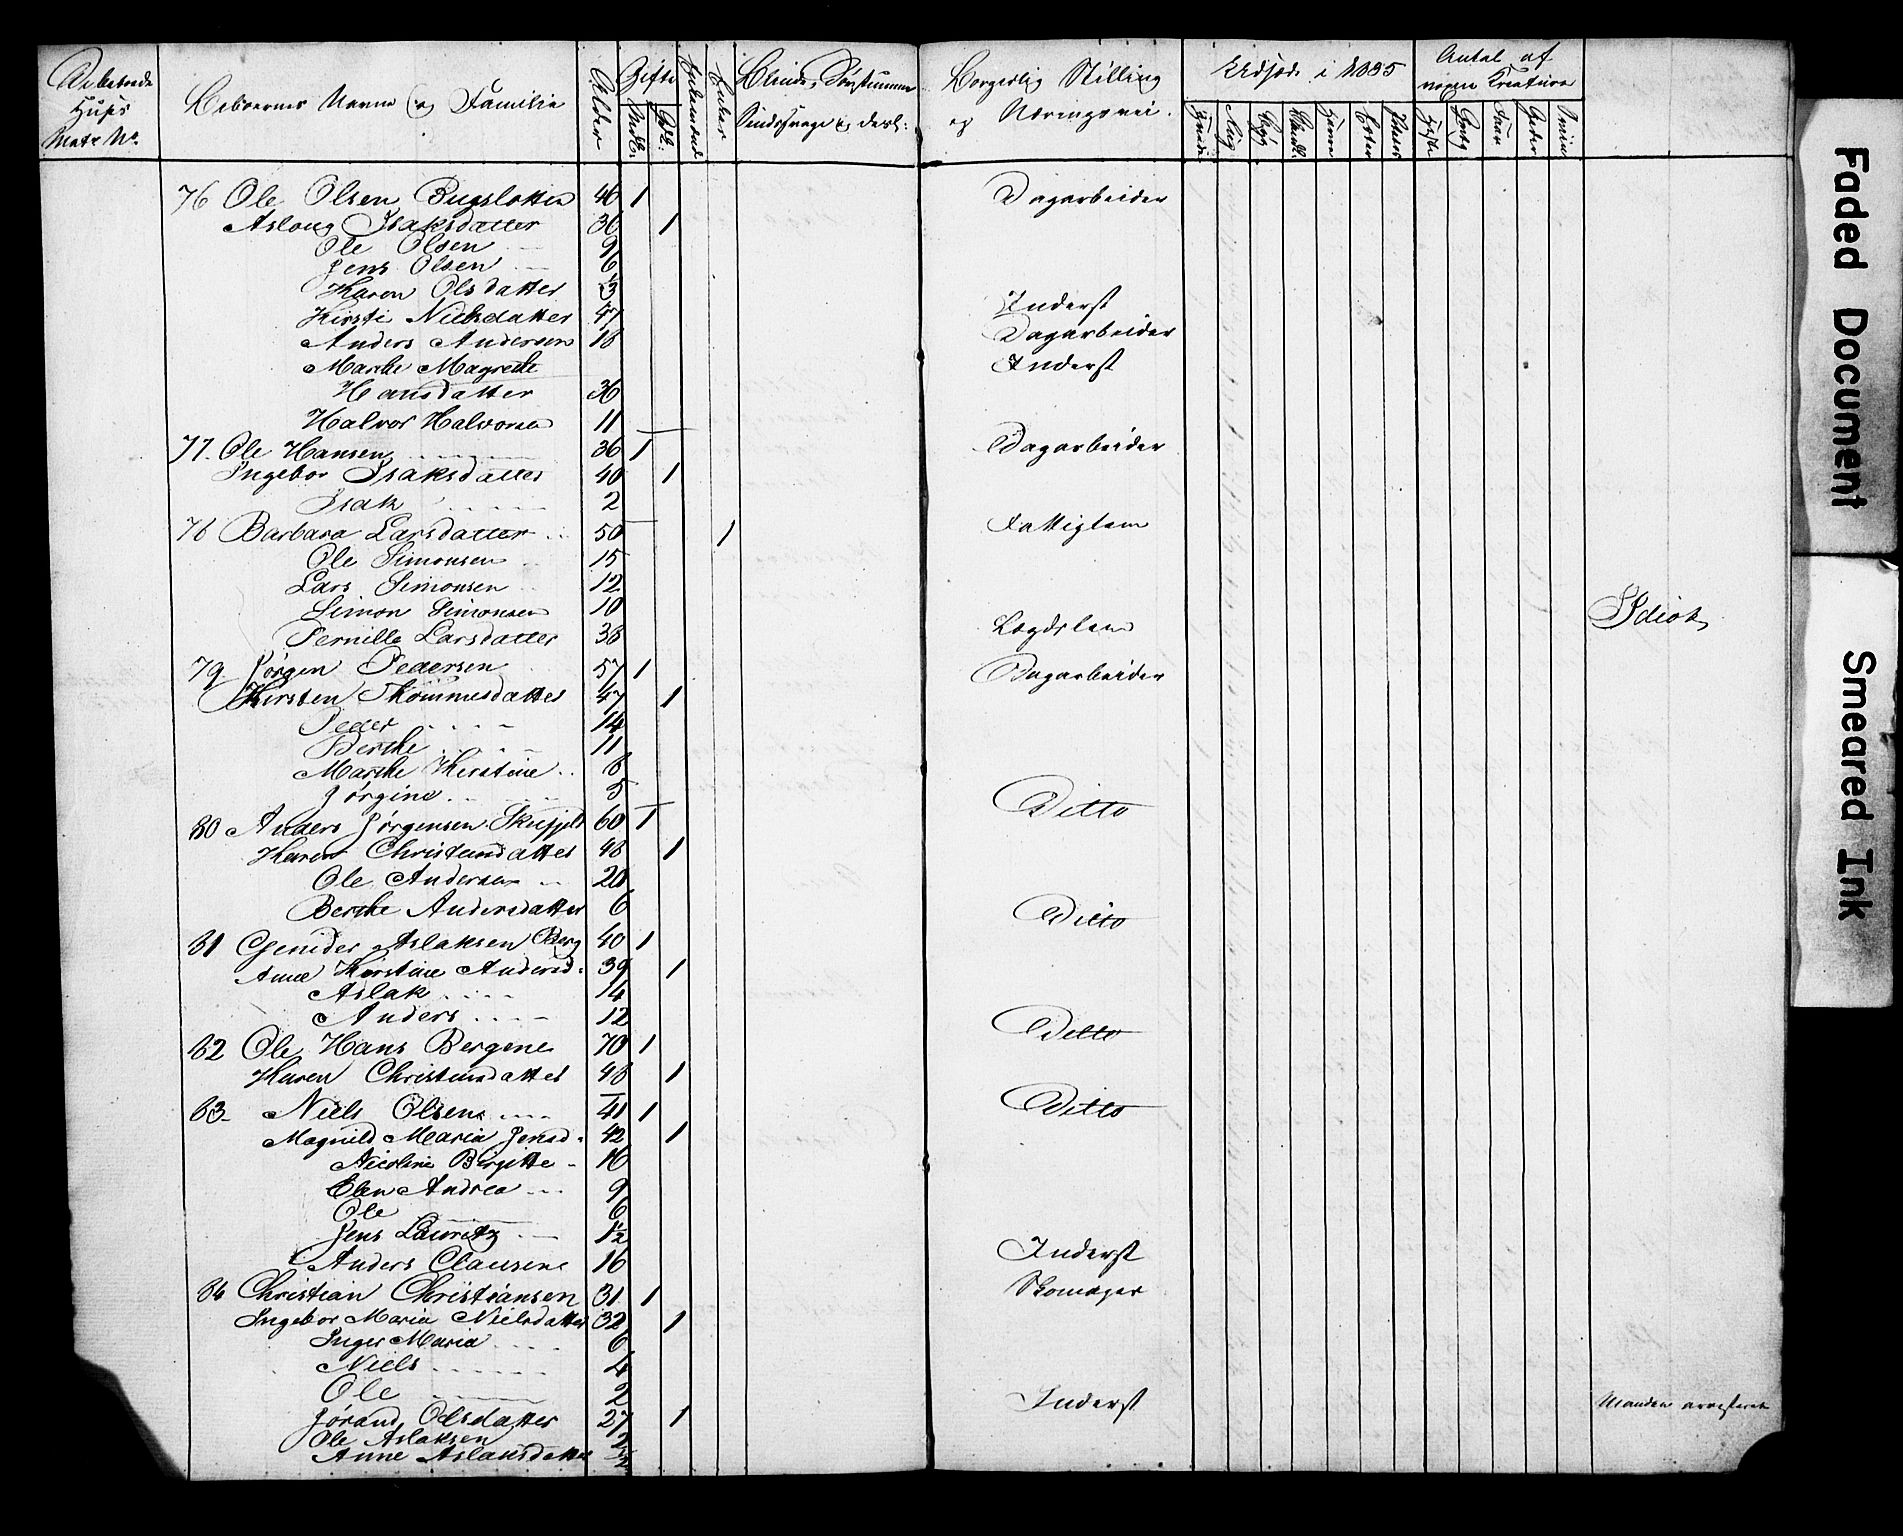 Bebodde Huses Matr No. Beboernes Navne og Familie Alder Gifte Mdk: Qdk: Enker Blinde, Døvstumme Sindssvage & desl: Borgerlig Stilling og Næringsvei. Udsæd i 1835 Hvede Rug Byg Bland. Havre Erter Poteter Antal af nogen Kreaturer Heste Qvæg Faar Geder Sviin
76 Ole Olsen 46 1 Dagarbeider
Asloug Isaksdatter 36 1
Ole Olsen 9
Jens Olsen 6
Karen Olsdatter 3
Kirsti Nielsdatter 47 Inderst
Anders Andersen 18 Dagarbeider
Marthe Magrethe Inderst
Hansdatter 36
Halvor Halvorsen 11
77 Ole Hansen 36 1 Dagarbeider
Ingebor Isaksdatter 40 1
Isak 2
78 Barbara Larsdatter 50 1 Fattiglem
Ole Simonsen 15
Lars Simonsen 12
Simon Simonsen 10
Pernille Larsdatter 38 Lægdslem Idiot
79 Jørgen Pedersen 57 1 Dagarbeider
Kirsten Thommesdatter 47 1
Peder 14
Berthe 11
Marthe Kirstine 8
Jørgine 5
80 Anders Jørgensen Skufjeld 60 1 Ditto
Karen Christensdatter 48 1
Ole Andersen 20
Berthe Andersdatter 6
81 Gunder Aslaksen Berg 40 1 Ditto
Anne Kirstine Andersd: 39 1
Aslak 14
Anders 12
82 Ole Hans Bergene 70 1 Ditto
Karen Christensdatter 48 1
83 Niels Olsen 41 1 Ditto
Magnild Maria Jensd: 42 1
Nicoline Birgitte 16
Elen Andrea 9
Ole 6
Jens Lauritz 1½
Anders Clausen 16 Inderst
84 Christian Christiansen 31 1 Skomager
Ingebor Maria Nielsdatter 32 1
Inger Maria 6
Niels 4
Ole 2
Jørand Olsdatter 27 1 Inderst Manden arresteret
Ole Aslaksen 2
Anne Aslaksdatter ½
Faded Document
Smeared Ink